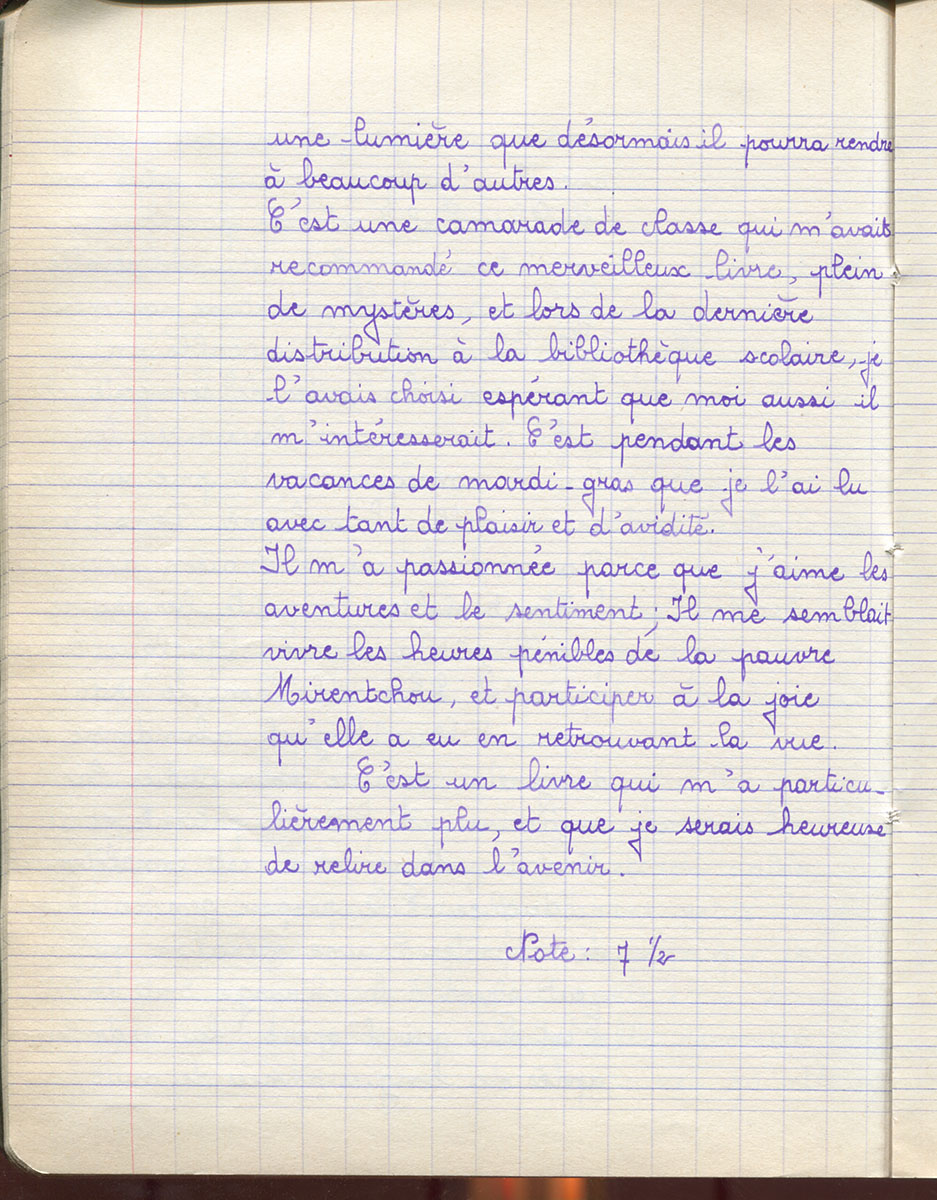 une lumière que désormais il pourra rendre
à beaucoup d'autres.
C'est une camarade de classe qui m'avait
recommandé ce merveilleux livre, plein
de mystères, et lors de la dernière
distribution à la bibliothèque scolaire, je
l'avais choisi espérant que moi aussi il
m'intéresserait. C'est pendant les
vacances de mardi-gras que je l'ai lu
avec tant de plaisir et d'avidité.
Il m'a passionnée parce que j'aime les
aventures et le sentiment; Il me semblait
vivre les heures pénibles de la pauvre
Mirentchou, et participer à la joie
qu'elle a eu en retrouvant la vue.
C'est un livre qui m'a particu-
lièrement plu, et que je serais heureuse
de relire dans l'avenir.
Note : 7 1/2